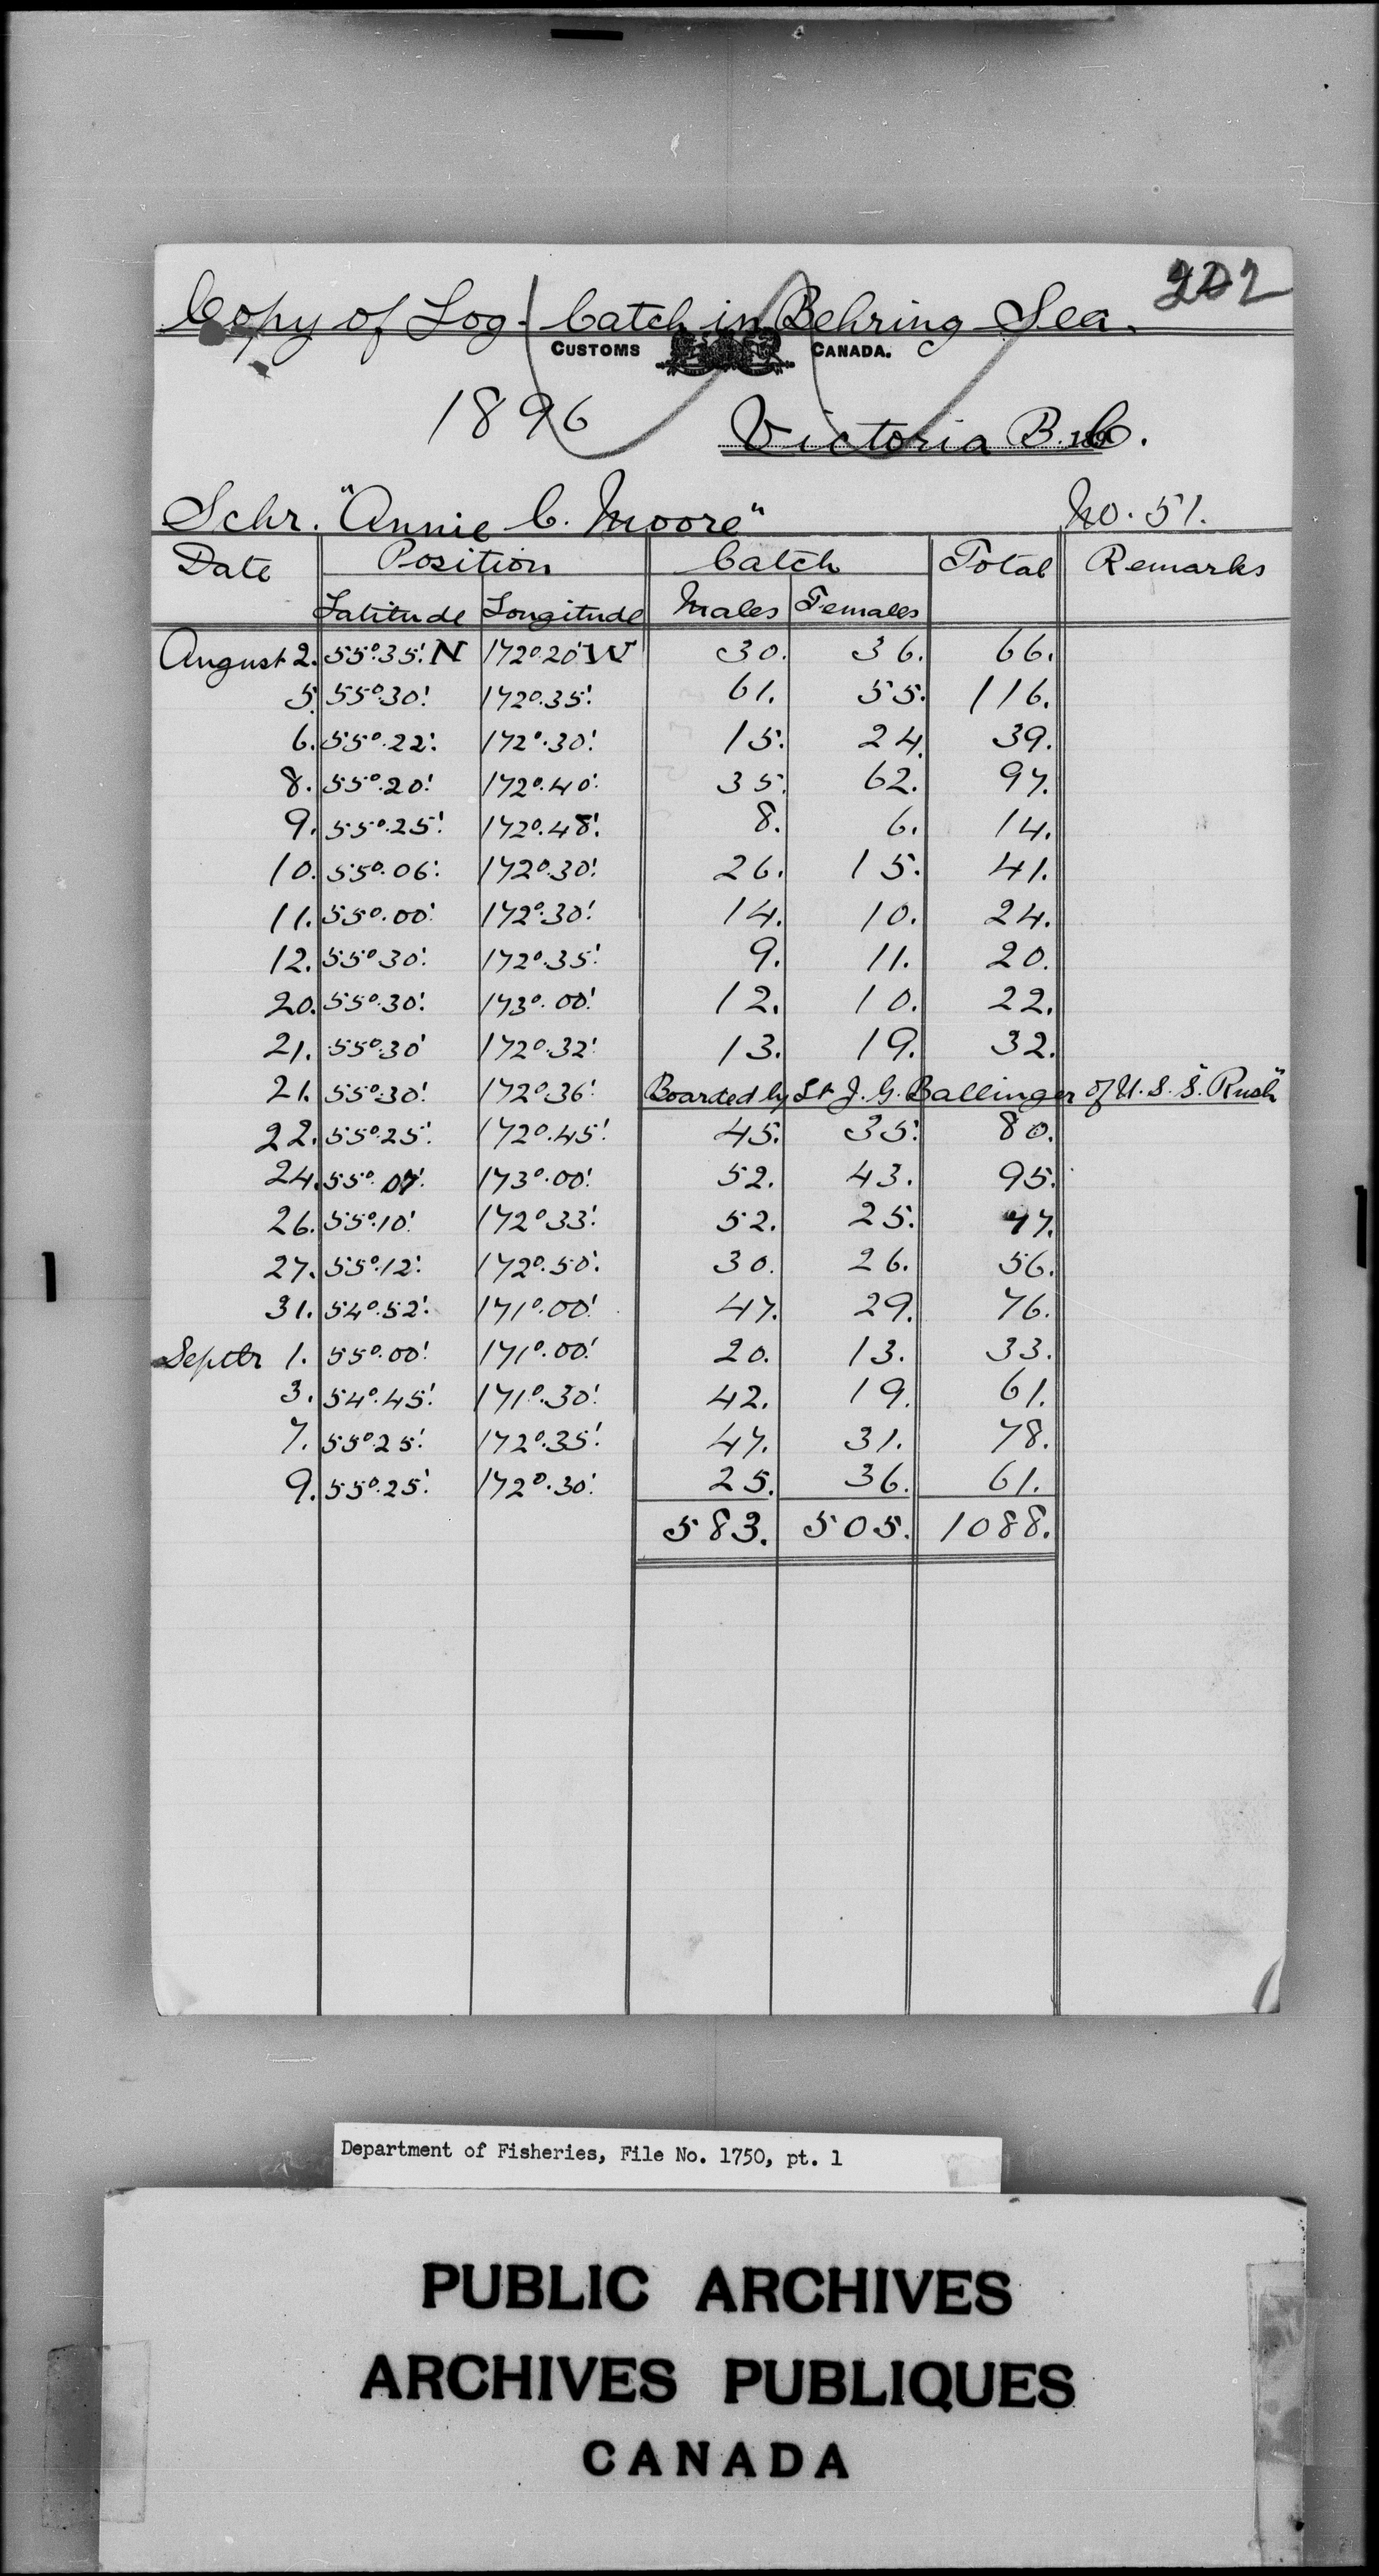 202
Copy of Log - Catch in Behring Sea.
CUSTOMS CANADA.
1896 Victoria B.C.
Schr. "Annie C. Moore" No. 51.
Date Position Catch Total Remarks
Latitude Longitude Males Females
August 2. 55°.35'. N 172°.20' W 30. 36. 66.
5. 55°.30'. 172°.35'. 61. 55. 116.
6. 55°.22'. 172°.30'. 15. 24. 39.
8. 55°.20'. 172°.40'. 35. 62. 97.
9. 55°.25'. 172°.48'. 8. 6. 14.
10. 55°.06'. 172°.30'. 26. 15. 41.
11. 55°.00'. 172°.30'. 14. 10. 24.
12. 55°30'. 172°.35'. 9. 11. 20.
20. 55°.30'. 173°.00'. 12. 10. 22.
21. 55°.30' 172°.32'. 13. 19. 32.
21. 55°.30'. 172°.36'. Boarded by Lt J. G. Ballinger of U. S. S. "Rush"
22. 55°.25'. 172°.45'. 45. 35. 80.
24. 55°.07'. 173°.00'. 52. 43. 95.
26. 55°.10'. 172°33'. 52. 25. 77.
27. 55°.12'. 172°.50'. 30. 26. 56.
31. 54°.52'. 171°.00'. 47. 29. 76.
Septbr 1. 55°.00'. 171°.00'. 20. 13. 33.
3. 54°.45'. 171°.30'. 42. 19. 61.
7. 55°.25'. 172°.35'. 47. 31. 78.
9. 55°.25'. 172°.30'. 25. 36. 61.
583. 505. 1088.
Department of Fisheries, File No. 1750, pt. 1
PUBLIC ARCHIVES
ARCHIVES PUBLIQUES
CANADA